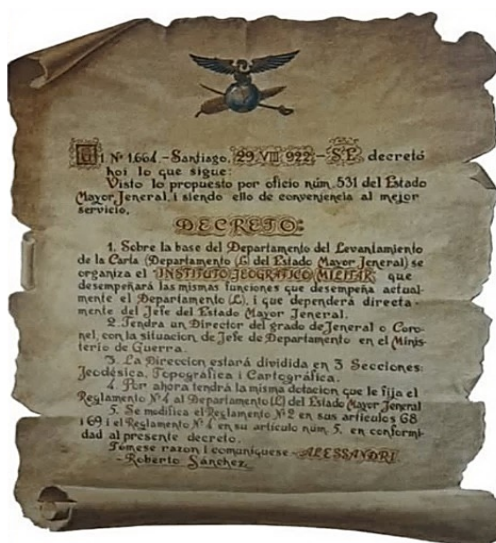 Di Nº 1.664.-Santiago, 29 VIII 922-S.E. decretó
hoi lo que sigue:
Visto lo propuesto por oficio núm. 531 del Estado
Mayor Jeneral, i siendo ello de conveniencia al mejor
servicio,
DECRETO:
1. Sobre la base del Departamento del Levantamiento
de la Carta (Departamento (L) del Estado Mayor Jeneral) se
organiza el INSTITUTO JEOGRAFICO MILITAR que
desempeñará las mismas funciones que desempeña actual-
mente el Departamento (L), i que dependerá directa-
mente del Jefe del Estado Mayor Jeneral.
2. Tendra un Director del grado de Jeneral o Coro-
nel, con la situacion de Jefe de Departamento en el Minis-
terio de Guerra.
3. La Direccion estará dividida en 3 Secciones:
Jeodésica, Topográfica i Cartográfica.
4. Por ahora tendrá la misma dotacion que le fija el
Reglamento Nº 4 al Departamento (L) del Estado Mayor Jeneral
5. Se modifica el Reglamento Nº 2 en sus artículos 68
i 69 i el Reglamento Nº 4 en su artículo núm. 5, en conformi-
dad al presente decreto.
Tómese razon i comuníquese-ALESSANDRI
-Roberto Sánchez